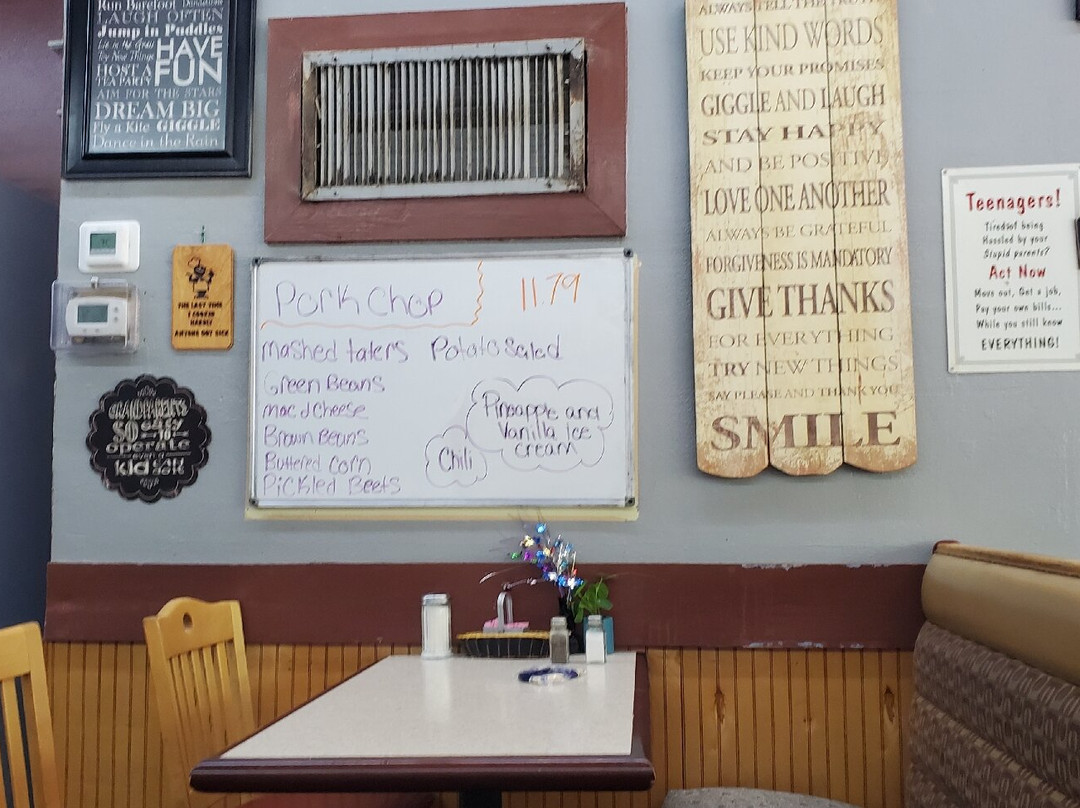 Run Barefoot
LAUGH OFTEN
Jump in Puddles
HAVE
Try New Things
FUN
HOST A
TEA PARTY
AIM FOR THE STARS
DREAM BIG
Fly a Kite GIGGLE
Dance in the Rain
THE LAST TIME
I COOKED
HARDLY
ANYONE GOT SICK
GRANDPARENTS
SO easy
TO
operate
even a
kid
Pork Chop 11.79
mashed taters Potato Salad
Green Beans
mac & Cheese
Brown Beans
Buttered Corn
Pickled Beets
Chili
Pineapple and
Vanilla Ice
cream
ALWAYS TELL THE TRUTH
USE KIND WORDS
KEEP YOUR PROMISES
GIGGLE AND LAUGH
STAY HAPPY
AND BE POSITIVE
LOVE ONE ANOTHER
ALWAYS BE GRATEFUL
FORGIVENESS IS MANDATORY
GIVE THANKS
FOR EVERYTHING
TRY NEW THINGS
SAY PLEASE AND THANK YOU
SMILE
Teenagers!
Tired of being
Hassled by your
Stupid parents?
Act Now
Move out, Get a job,
Pay your own bills...
While you still know
EVERYTHING!